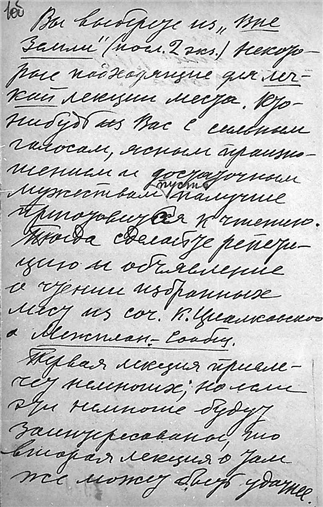 106
Вы выберете из „Вне
Земли" (посл. 2 экз.) некото-
рые подходящие для лег-
кой лекции места. Кто-
нибудь из Вас с сильным
голосом, ясным произно-
шением и достаточным
мужеством пусть получше
приготовится к чтению.
Тогда сделайте репети-
цию и объявление
о чтении избранных
мест из соч. К. Циалковского
о Межплан. сообщ.
Первая лекция привле-
чет немногих; но если
эти немногие будут
заинтересованы, то
вторая лекция о том
же может быть удачнее.